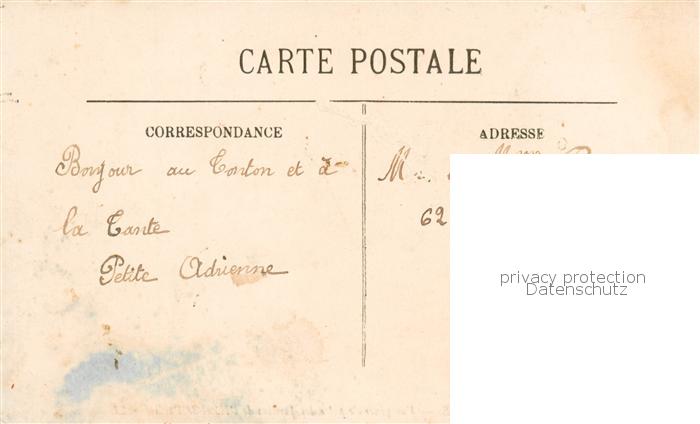 CARTE POSTALE
CORRESPONDANCE
Bonjour au Tonton et à
la Tante
Petite Adrienne
ADRESSE
62
privacy protection
Datenschutz